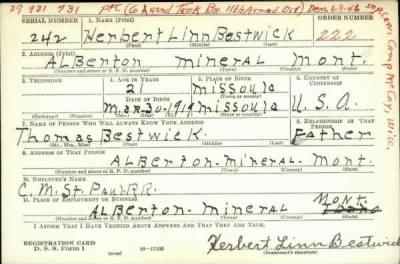 39 921 731 PFC (Co A 62nd Tank Bn. 11th Armd Div)
SERIAL NUMBER 1. NAME (Print) ORDER NUMBER
242 Herbert Linn Bestwick 222
(First) (Middle) (Last)
2. ADDRESS (Print)
ALBerton mineral Mont.
(Number and street or R. F. D. number) (Town) (County) (State)
3. TELEPHONE 4. AGE IN YEARS 5. PLACE OF BIRTH 6. COUNTRY OF CITIZENSHIP
21 Missoula
DATE OF BIRTH (Town or county)
Mar-30-1919 missoula U.S.A.
(Exchange) (No.) (Mo.) (Day) (Yr.) (State or country)
7. NAME OF PERSON WHO WILL ALWAYS KNOW YOUR ADDRESS 8. RELATIONSHIP OF THAT PERSON
Thomas Bestwick. Father
(Mr., Mrs., Miss) (First) (Middle) (Last)
9. ADDRESS OF THAT PERSON
ALBerton-mineral-Mont.
(Number and street or R. F. D. number) (Town) (County) (State)
10. EMPLOYER'S NAME
C.M.St. Paul.RR.
11. PLACE OF EMPLOYMENT OR BUSINESS
ALBerton-mineral Mont.
(Number and street or R. F. D. number) (Town) (County) (State)
I AFFIRM THAT I HAVE VERIFIED ABOVE ANSWERS AND THAT THEY ARE TRUE.
REGISTRATION CARD
D. S. S. Form 1 (over) 16—17105 Herbert Linn Bestwick